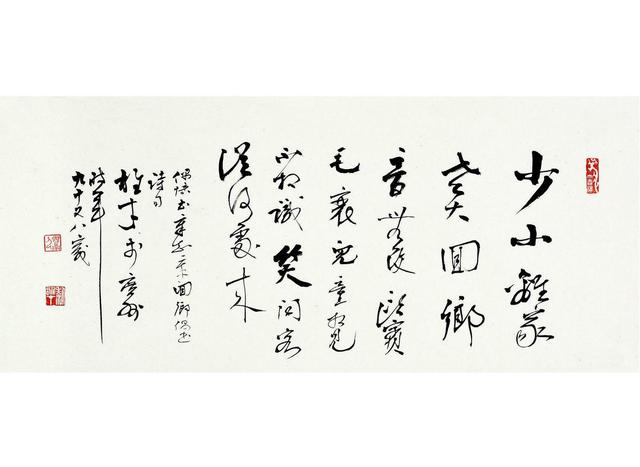 少小離家
老大回鄉
音無改鬢
毛衰兒童相見
不相識笑問客
從何處來
回鄉偶書
詩句
於廣州
時年
九十又八歲